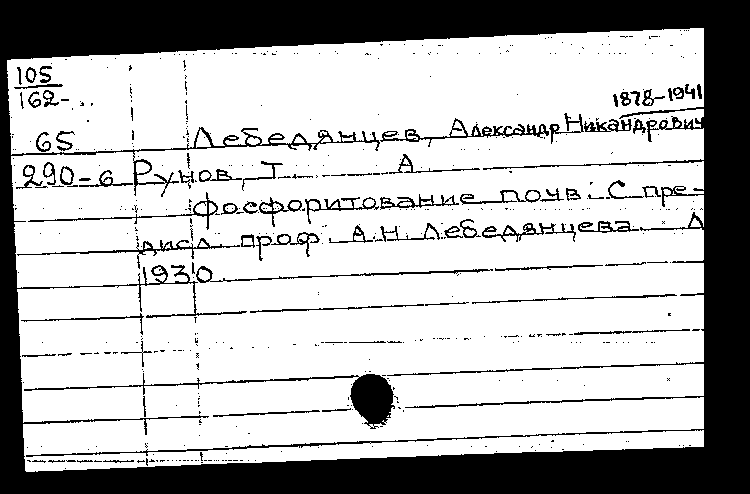 105
162-...
1878-1941
65 Лебедянцев, Александр Никандрович
290-6 Рунов, Т. А
Фосфоритование почв: С пре-
дисл. проф. А.Н. Лебедянцева. Л
1930.